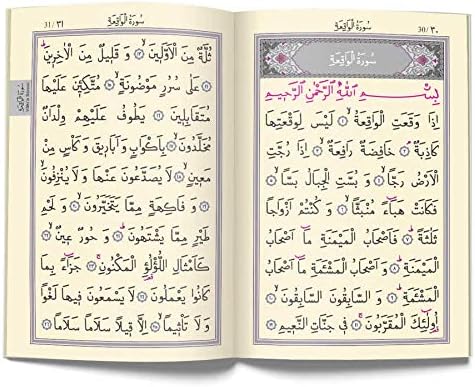 سُورَةُ الْوَاقِعَةِ 30/٣٠
سُورَةُ الْوَاقِعَةِ
بِسْمِ اللّٰهِ الرَّحْمٰنِ الرَّحٖيمِ
اِذَا وَقَعَتِ الْوَاقِعَةُ ﴿١﴾ لَيْسَ لِوَقْعَتِهَا
كَاذِبَةٌ ﴿٢﴾ خَافِضَةٌ رَافِعَةٌ ﴿٣﴾ اِذَا رُجَّتِ
الْاَرْضُ رَجًّا ﴿٤﴾ وَ بُسَّتِ الْجِبَالُ بَسًّا ﴿٥﴾
فَكَانَتْ هَبَٓاءً مُنْبَثًّا ﴿٦﴾ وَ كُنْتُمْ اَزْوَاجًا
ثَلٰثَةً ﴿٧﴾ فَاَصْحَابُ الْمَيْمَنَةِ مَٓا اَصْحَابُ
الْمَيْمَنَةِ ﴿٨﴾ وَ اَصْحَابُ الْمَشْـَٔمَةِ مَٓا اَصْحَابُ
الْمَشْـَٔمَةِ ﴿٩﴾ وَ السَّابِقُونَ السَّابِقُونَ ﴿١٠﴾
اُولٰٓئِكَ الْمُقَرَّبُونَ ﴿١١﴾ فٖي جَنَّاتِ النَّعٖيمِ ﴿١٢﴾
سُورَةُ الْوَاقِعَةِ 31/٣١
ثُلَّةٌ مِنَ الْاَوَّلٖينَ ﴿١٣﴾ وَ قَلٖيلٌ مِنَ الْاٰخِرٖينَ
﴿١٤﴾ عَلٰى سُرُرٍ مَوْضُونَةٍ ﴿١٥﴾ مُتَّكِـٖٔينَ عَلَيْهَا
مُتَقَابِلٖينَ ﴿١٦﴾ يَطُوفُ عَلَيْهِمْ وِلْدَانٌ
مُخَلَّدُونَ ﴿١٧﴾ بِاَكْوَابٍ وَ اَبَارٖيقَ وَ كَاْسٍ مِنْ
مَعٖينٍ ﴿١٨﴾ لَا يُصَدَّعُونَ عَنْهَا وَ لَا يُنْزِفُونَ
﴿١٩﴾ وَ فَاكِهَةٍ مِمَّا يَتَخَيَّرُونَ ﴿٢٠﴾ وَ لَحْمِ
طَيْرٍ مِمَّا يَشْتَهُونَ ﴿٢١﴾ وَ حُورٌ عٖينٌ ﴿٢٢﴾
كَاَمْثَالِ اللُّؤْلُؤِ الْمَكْنُونِ ﴿٢٣﴾ جَزَٓاءً بِمَا
كَانُوا يَعْمَلُونَ ﴿٢٤﴾ لَا يَسْمَعُونَ فٖيهَا لَغْوًا
وَ لَا تَاْثٖيمًا ﴿٢٥﴾ اِلَّا قٖيلًا سَلَامًا سَلَامًا ﴿٢٦﴾